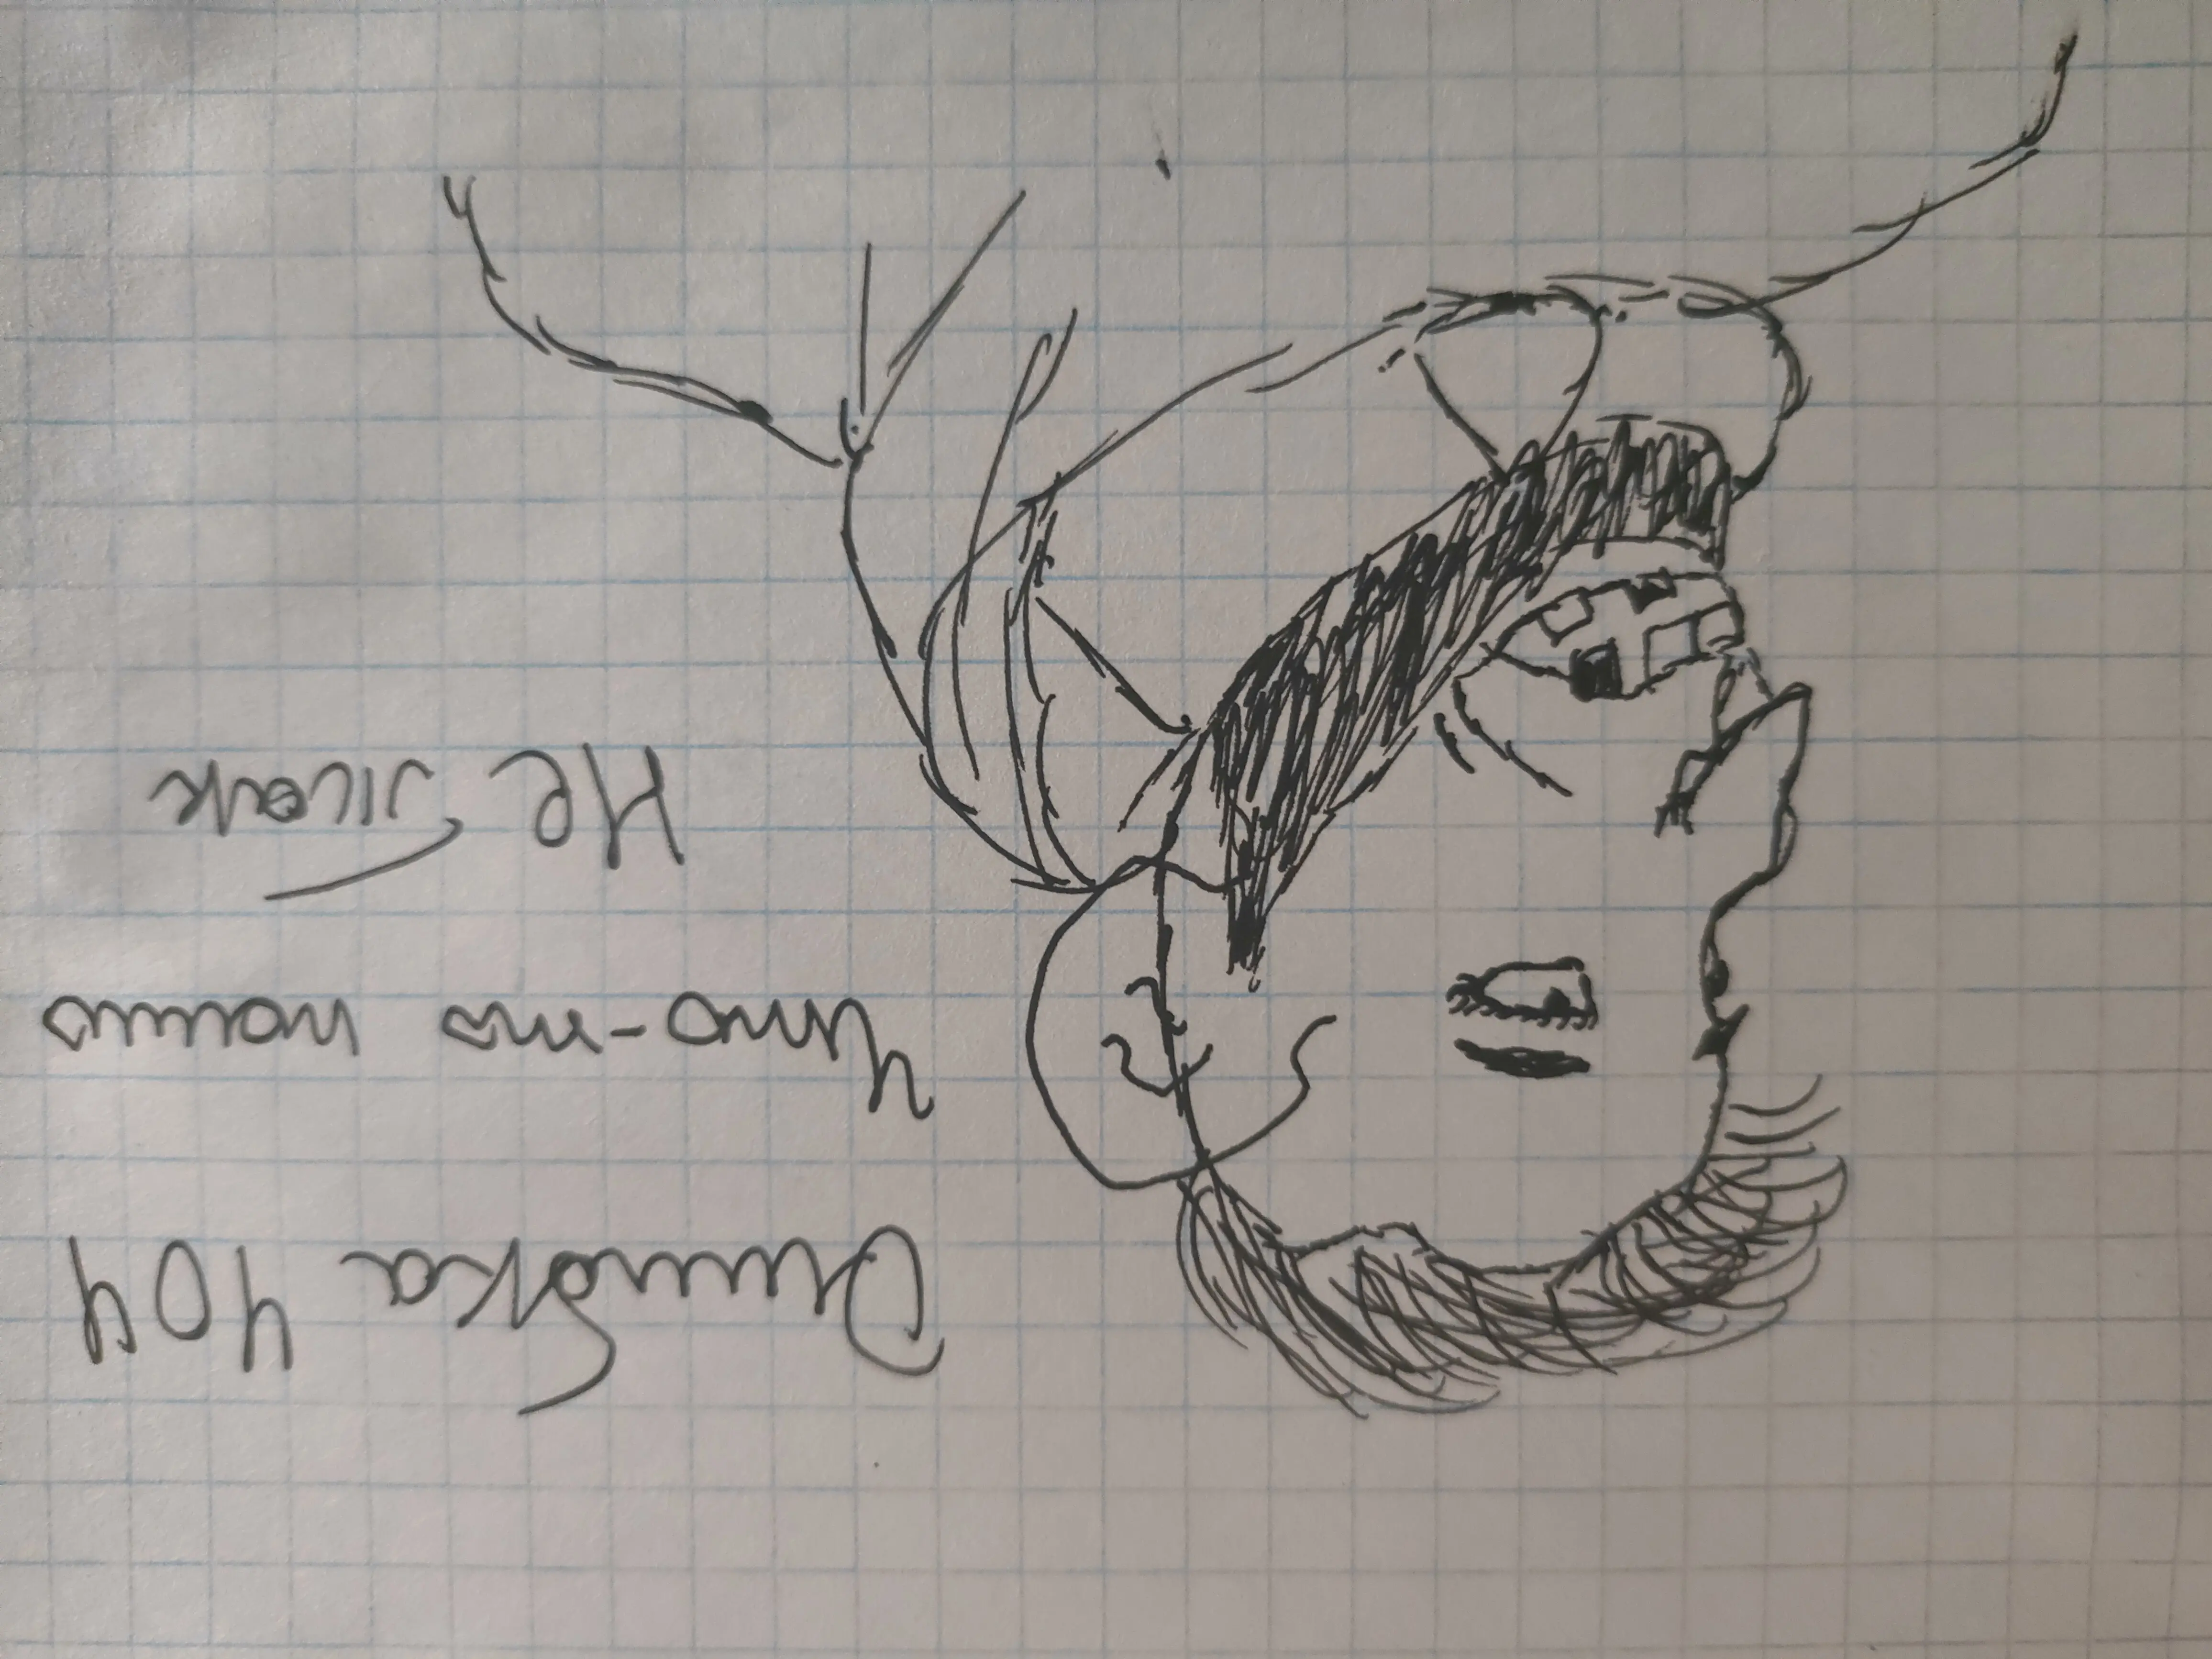 Ошибка 404
Что-то пошло
Не Так